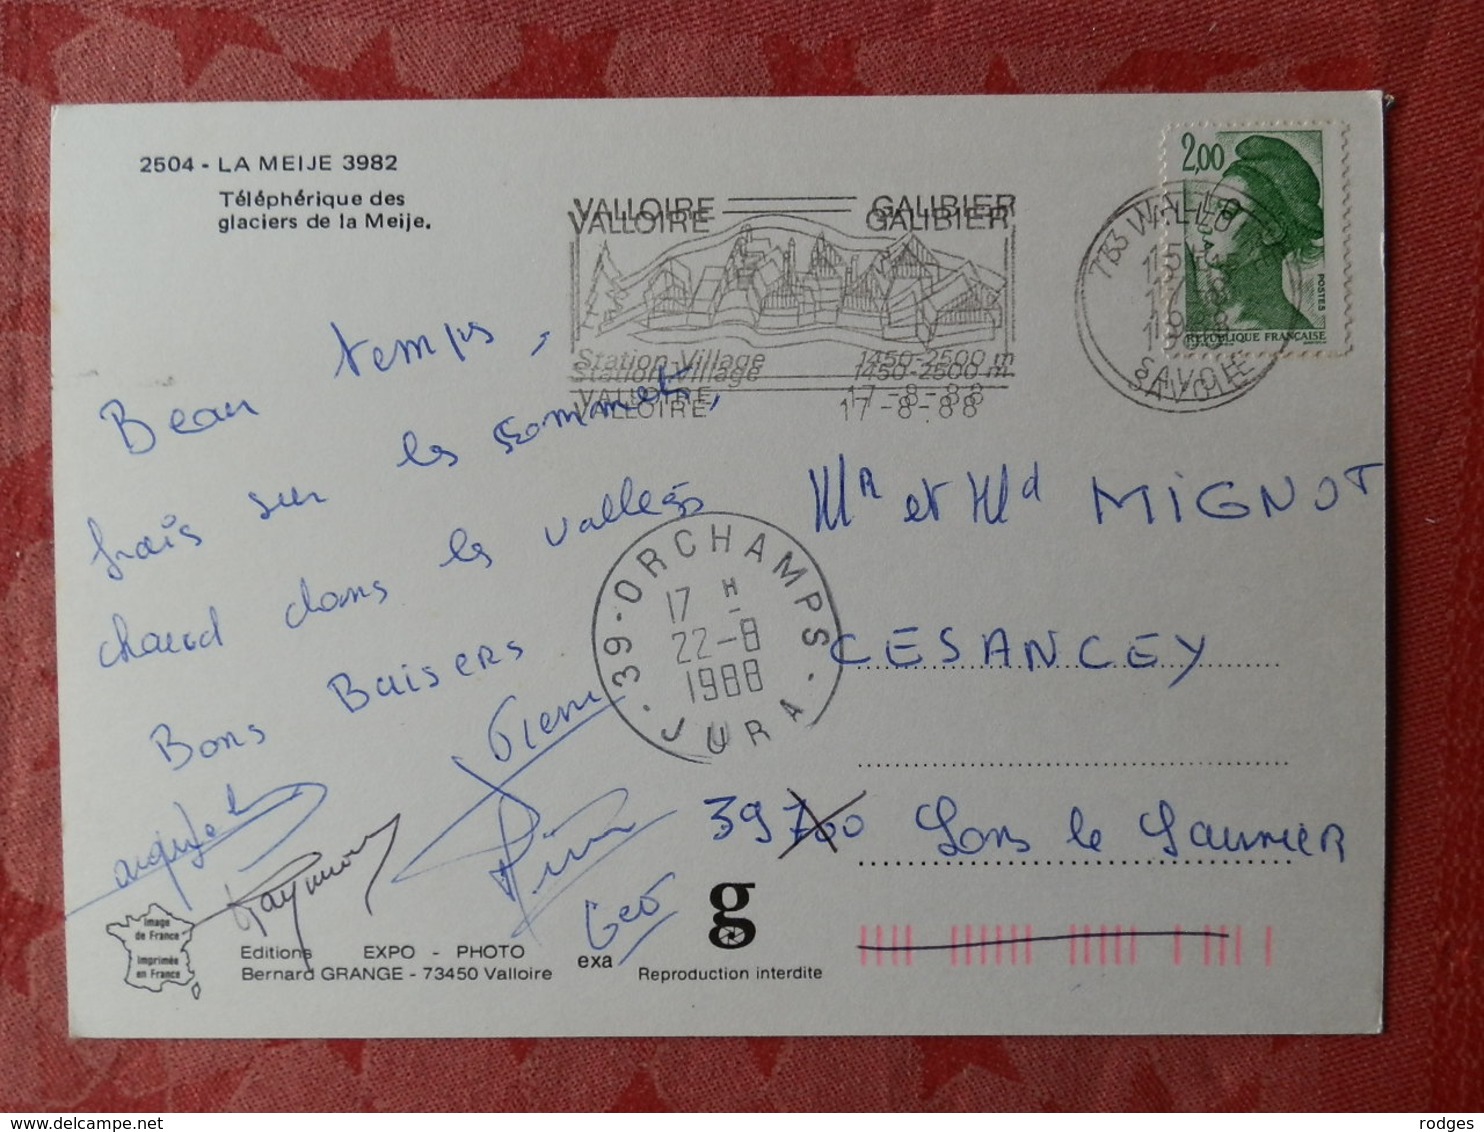 2504 - LA MEIJE 3982
Téléphérique des
glaciers de la Meije.
VALLOIRE GALIBIER
VALLOIRE GALIBIER
Station-Village 1450-2500 m
Station-Village 1450-2500 m
VALLOIRE 17-8-88
VALLOIRE 17-8-88
2,00
POSTES
REPUBLIQUE FRANÇAISE
SAVOIE
Beau temps,
frais sur les sommet,
chaud dans les vallegs
Bons Baisers
Pierre
Raymond
Geo
39 - ORCHAMPS
17 H
22-8
1988
JURA
Mr et Md MIGNOT
CESANCEY
39700 Lons le Saunier
Image
de France
Imprimée
en France
Editions EXPO - PHOTO
Bernard GRANGE - 73450 Valloire
exa
g
Reproduction interdite
rodges